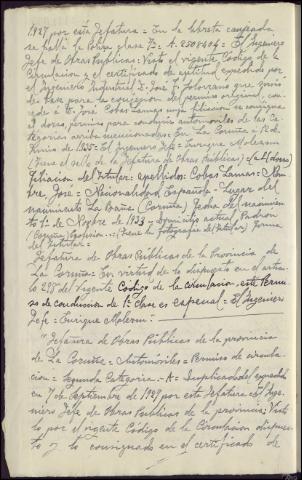 1927 por esta Jefatura = En la libreta canjeada
se halla la Poliza clase 7ª A. 2507406 = El Ingeniero
Jefe de Obras Publicas: Visto el vigente Código de la
Circulacion y el certificado de aptitud expedido por
el Ingeniero Industrial D. José J.
de base para la expedicion del permiso original, con-
cede a D. José Cobas Lamas cuya filiacion se consigna
al dorso, permiso para conducir automoviles de las Ca-
tegorias arriba mencionadas. En La Coruña a 12 de
Junio de 1935 = El Ingeniero Jefe = Enrique Molezun
(Tiene el sello de la Jefatura de Obras Publicas) = (al dorso)
Filiacion del Titular: apellidos: Cobas Lamas: Nom-
bre, José = Nacionalidad Española = Lugar del
nacimiento La Baña (Coruña) fecha del nacimien-
to 1º de Nvbre de = Domicilio actual, Padron
(Coruña) = (Tiene la fotografia del titular) Firma
del titular =
Jefatura de Obras Públicas de la Provincia de
La Coruña = En virtud de lo dispuesto en el articu-
lo del Vigente Codigo de la circulacion, este Permi-
so de conduccion de 1ª clase es especial = El Ingeniero
Jefe = Enrique Molezun =
Jefatura de Obras Públicas de la provincia
de La Coruña = Automóviles = Permiso de circula-
cion = Segunda Categoria = A = Duplicado del expedido
en 7 de Septiembre de 1927 por esta Jefatura = El Inge-
niero Jefe de Obras Publicas de la provincia; Vis-
to por el vigente Código de la Circulacion dispues-
to y lo consignado en el certificado de